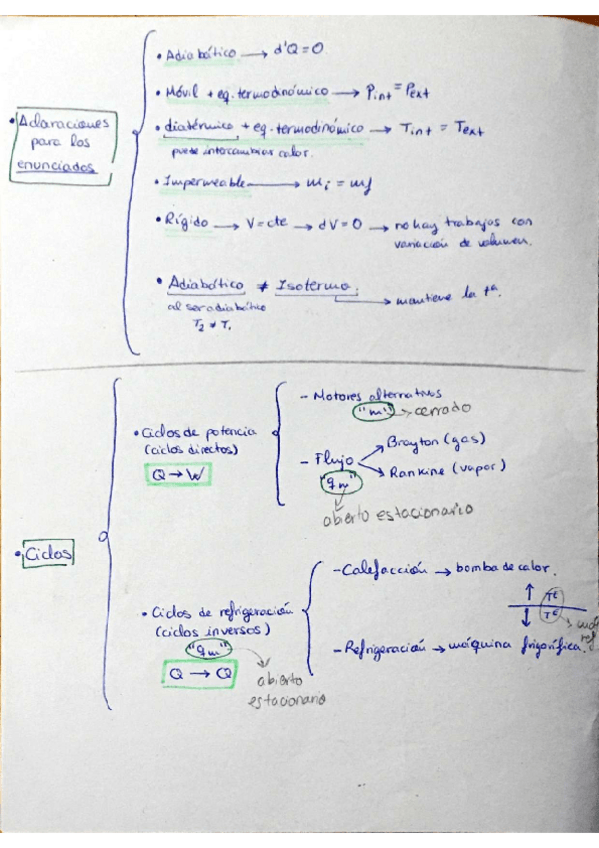 • Adiabático → d'Q = 0
• Móvil + eq. termodinámico → Pint = Pext
• Aclaraciones para los enunciados
• diatérmico + eq. termodinámico → Tint = Text
puede intercambiar calor.
• Impermeable → mi = mf
• Rígido → V = cte → dV = 0 → no hay trabajos con
variación de volumen.
• Adiabático ≠ Isotermo.
→ mantiene la tª.
al ser adiabático
T2 ≠ T1
• Ciclos
• Ciclos de potencia
(ciclos directos)
Q → W
- Motores alternativos
"m" → cerrado
- Flujo
"qm"
Brayton (gas)
Rankine (vapor)
abierto estacionario
• Ciclos de refrigeración
(ciclos inversos)
"qm"
Q → Q
abierto
estacionario
- Calefacción → bomba de calor.
- Refrigeración → máquina frigorífica.
↑
↓